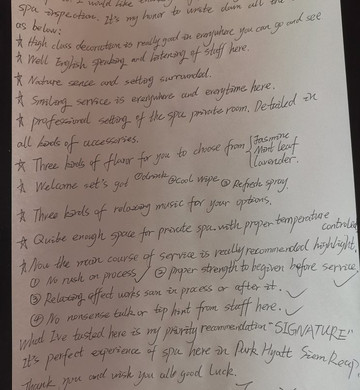 I would like
spa inspection. It's my honor to write down all the
as below:
☆ High class decoration is really good in everywhere you can go and see
☆ Well English speaking and listening of staff here.
☆ Nature sence and setting surrounded.
☆ Smiling service is everywhere and everytime here.
☆ professional setting of the spa private room. Detailed in
all kinds of accessories.
☆ Three kinds of flavor for you to choose from { Jasmine
Mint leaf
Lavender.
☆ Welcome set's got ① drink ② cool wipe ③ Refresh spray.
☆ Three kinds of relaxing music for your options.
☆ Quite enough space for private spa with proper temperature controlled
☆ Now the main course of service is really recommended highlight.
① No rush on process ✓ ② proper strength to be given before service.
③ Relaxing effect works som in process or after it. ✓
④ No nonsense talk or top hint from staff here. ✓
What I've tasted here is my priority recommendation "SIGNATURE"
It's perfect experience of spa here in Park Hyatt Siem Reap
Thank you and wish you all good Luck.